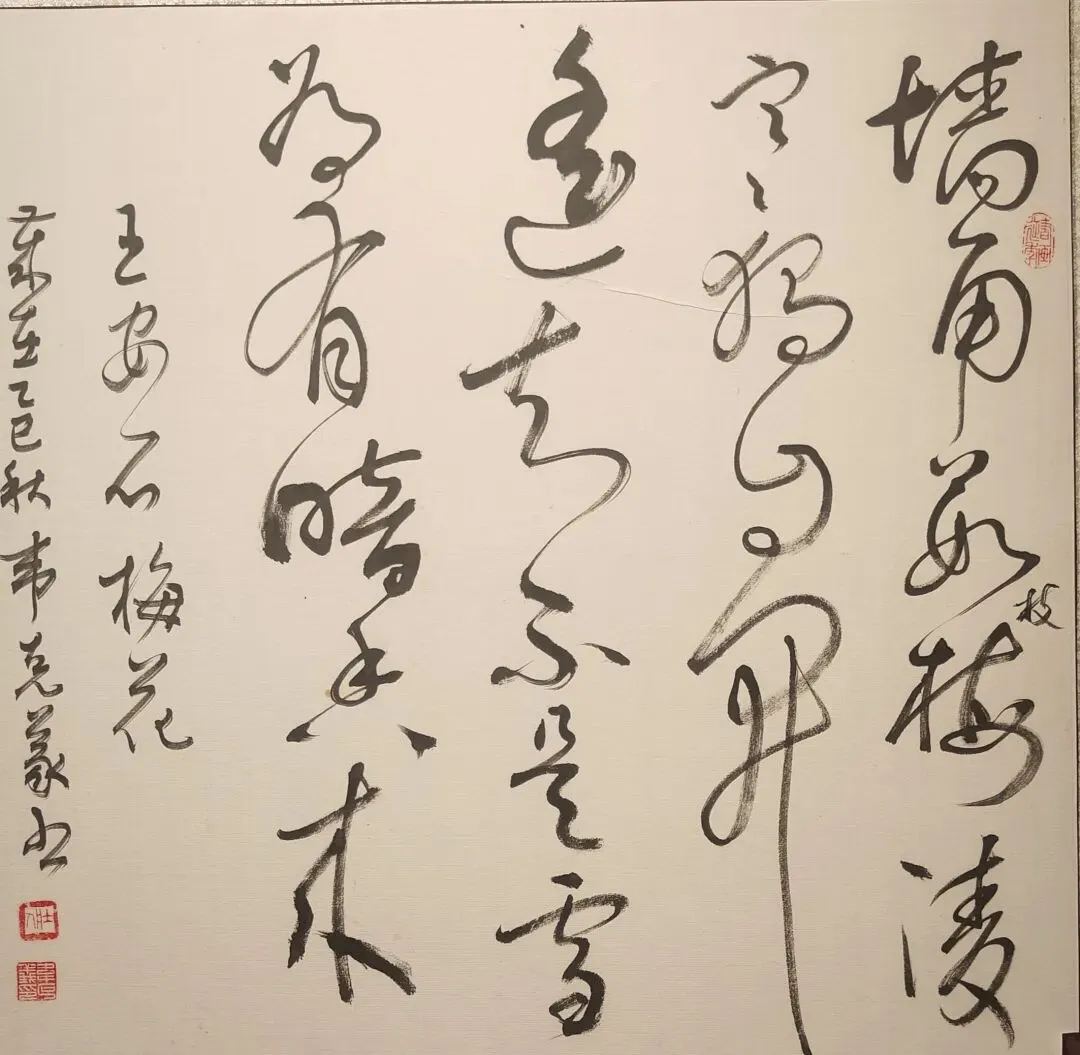 墙角数枝梅凌
寒独自开
遥知不是雪
为有暗香来
王安石梅花
岁在乙巳秋韦克义书